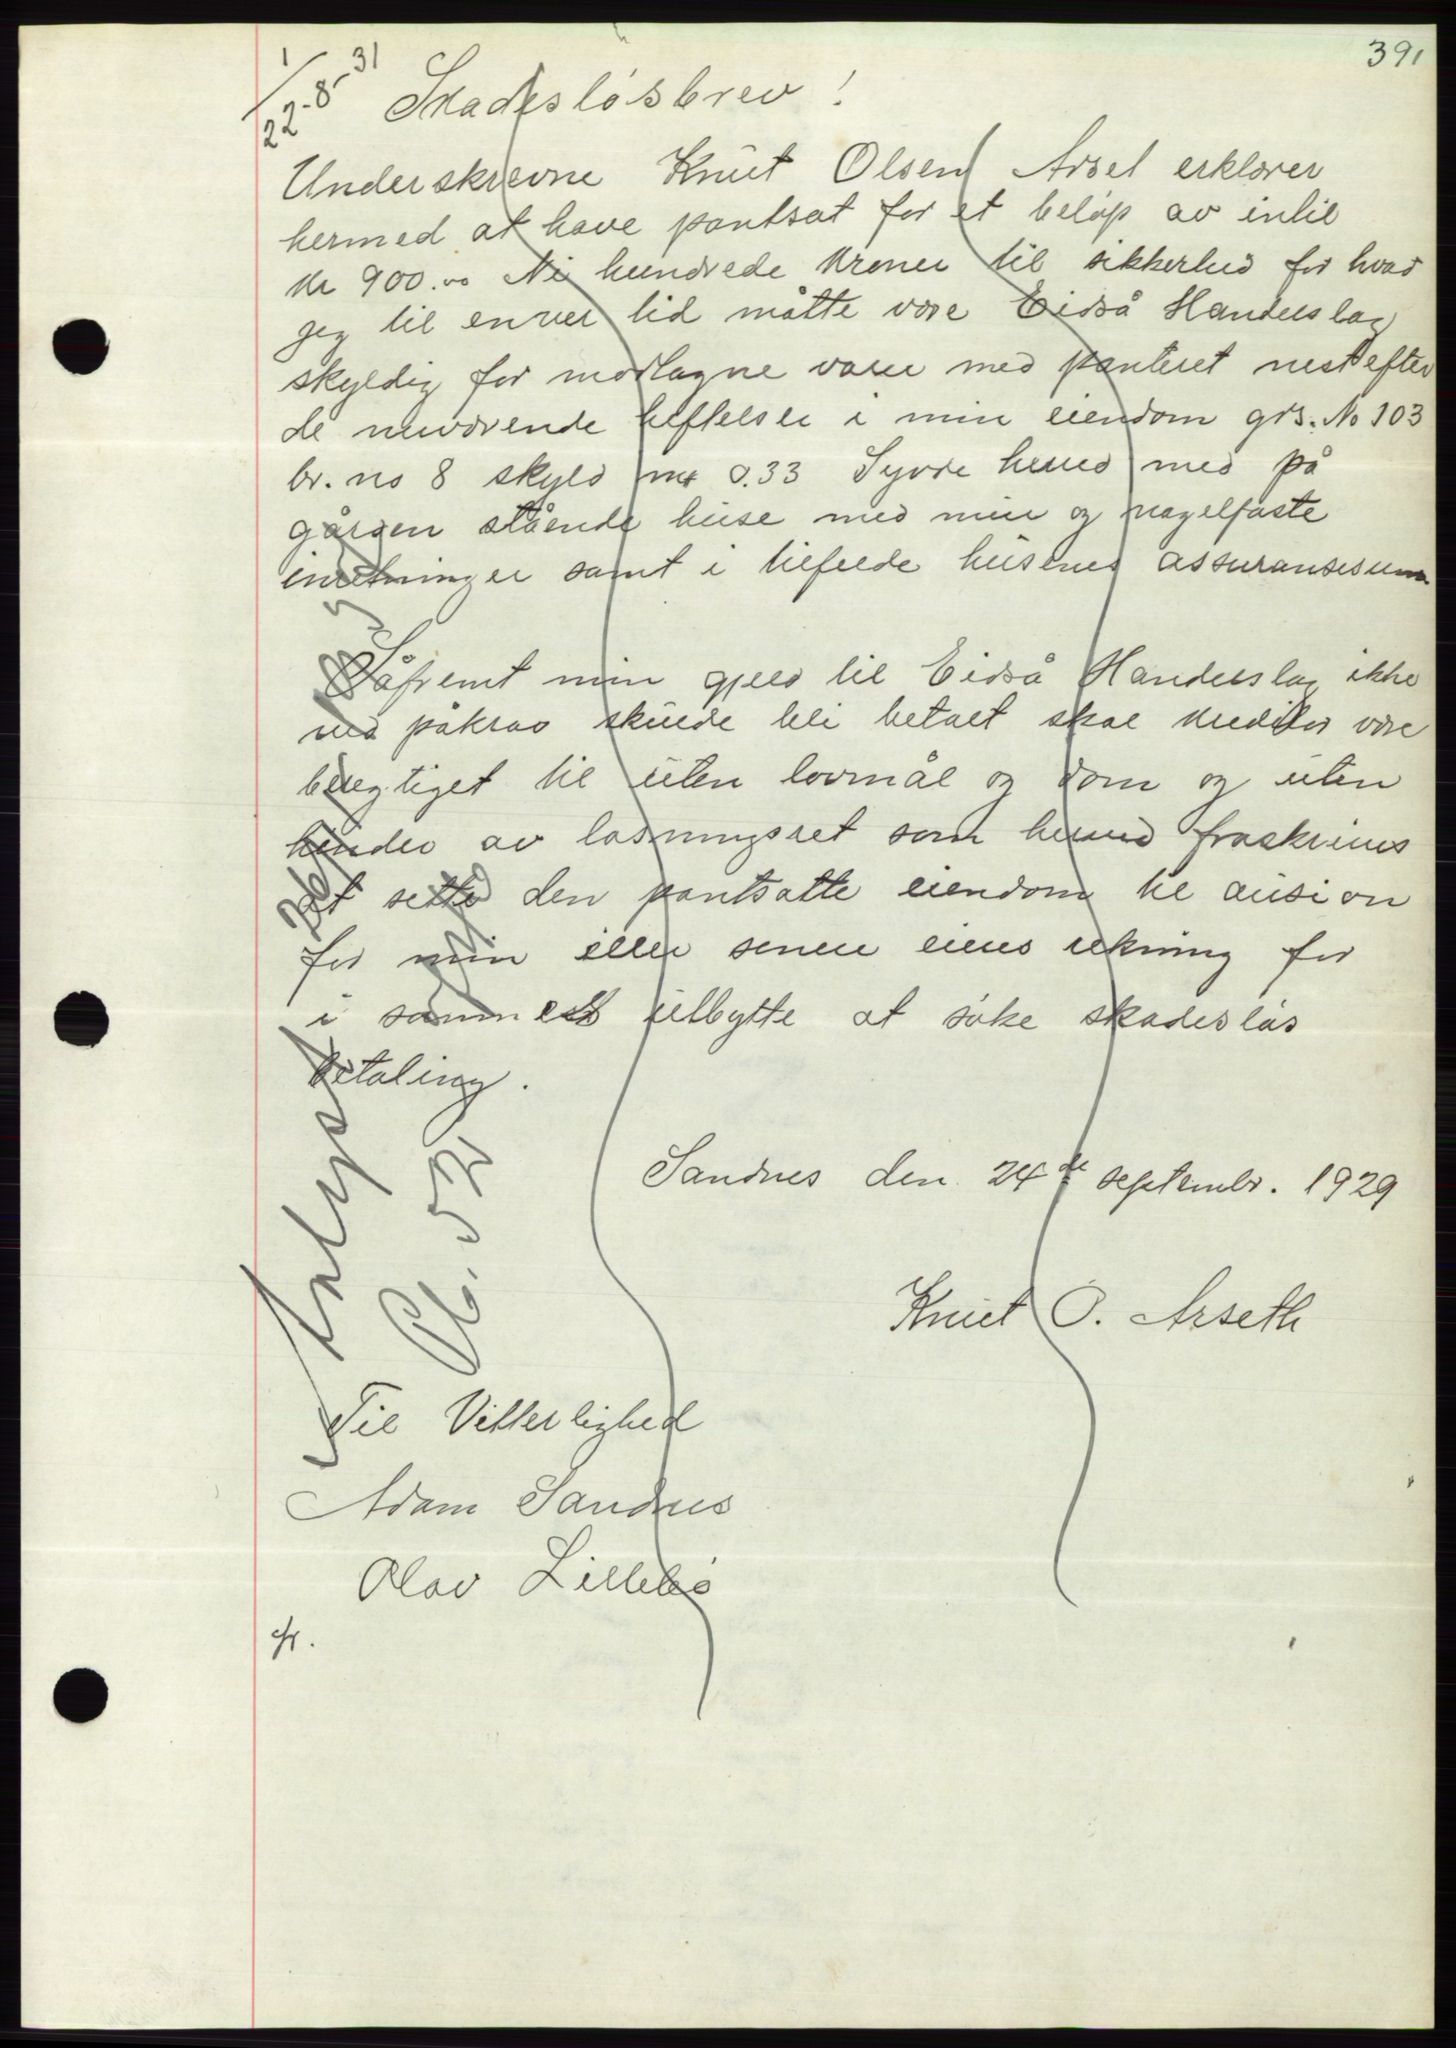 391
1/22-8-31
Skadesløsbrev!
Underskrevne Knut Olsen Arset erklærer
hermed at have pantsat for et beløp av intil
kr 900.00 Ni hundrede kroner til sikkerhed for hvad
jeg til enver tid måtte være Eidså Handelslag
skyldig for modtagne varer med panteret nest efter
de nuværende heftelser i min eiendom grs. No 103
br. no 8 skyld mk 0.33 Syvde herred med på
gården stående huse med mur og nagelfaste
inretninger samt i tilfelde husenes assuransesum
Såfremt min gjeld til Eidså Handelslag ikke
ved påkrav skulde bli betalt skal kreditor være
beregtiget til uten lovmål og dom og uten
hinder av løsningsret som herved fraskrives
at sette den pantsatte eiendom til ausion
for min eller senere eiers rekning for
i sammes utbytte at søke skadesløs
betaling.
Sandnes den 24de septembr. 1929
Knut O. Arseth
Til Vitterlighed
Adam Sandnes
Olav Lillebø
Avlyst
Pb. 52